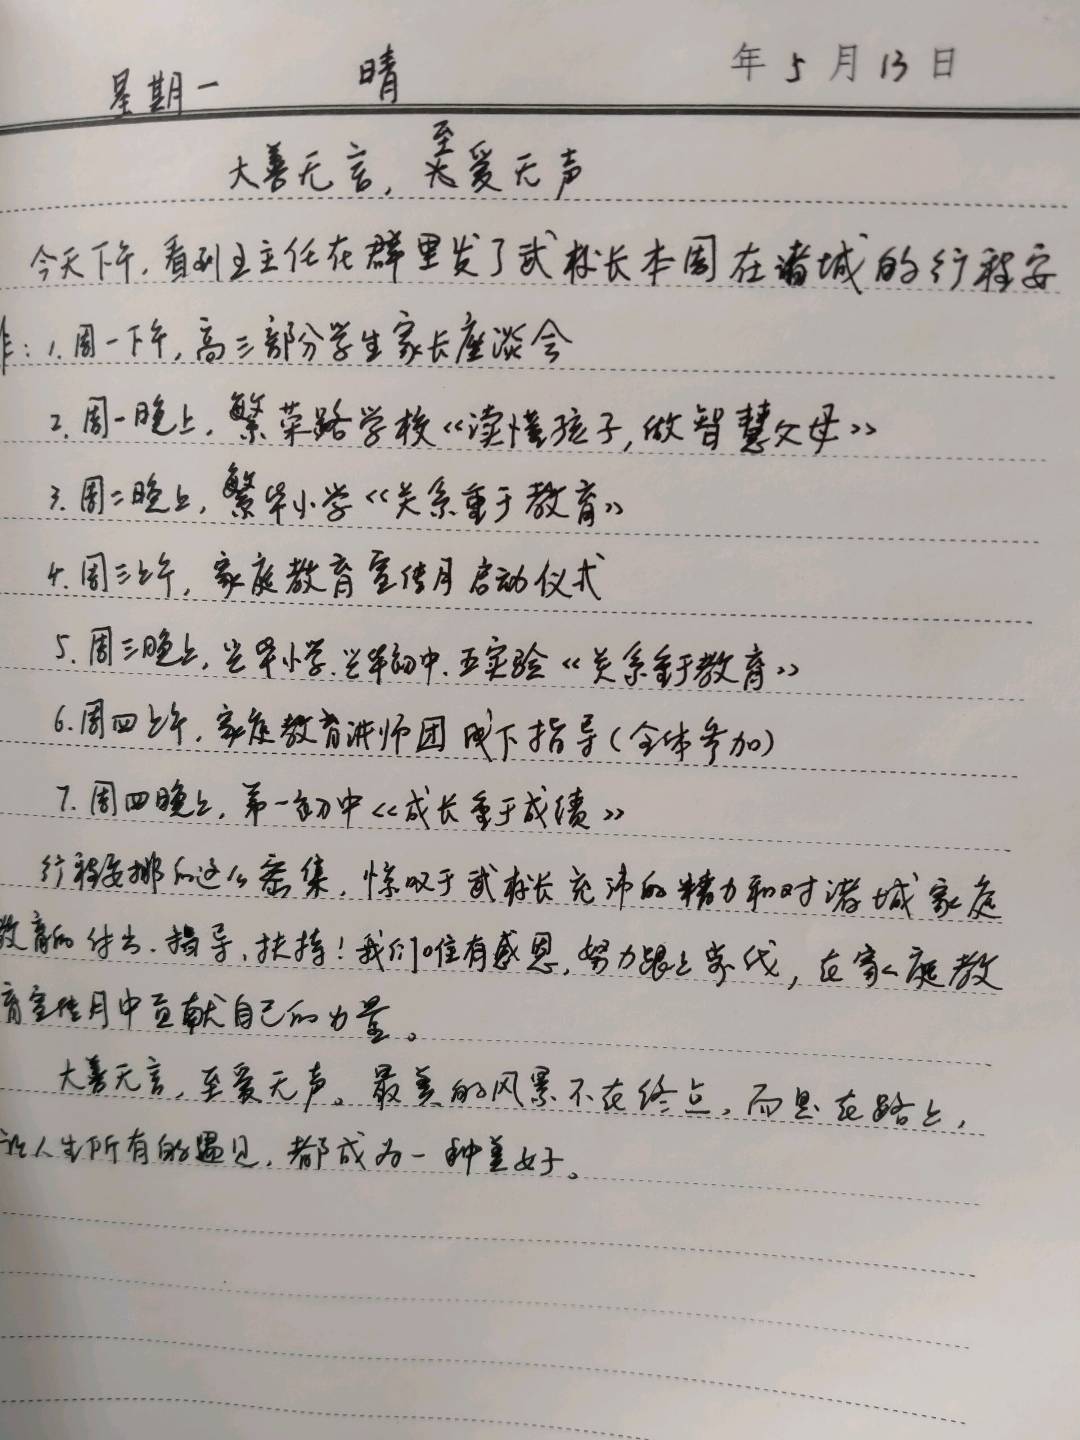 星期一 晴 年5月13日
大善无言，至爱无声
今天下午，看到王主任在群里发了武校长本周在诸城的行程安
排：1.周一下午，高三部分学生家长座谈会
2.周一晚上，繁荣路学校《读懂孩子，做智慧父母》
3.周二晚上，繁华小学《关系重于教育》
4.周三上午，家庭教育宣传月启动仪式
5.周三晚上，兰华小学.兰华初中.五实验《关系重于教育》
6.周四上午，家庭教育讲师团线下指导（全体参加）
7.周四晚上，第一初中《成长重于成绩》
行程安排的这么密集，惊叹于武校长充沛的精力和对诸城家庭
教育的付出、指导、扶持！我们唯有感恩，努力跟上时代，在家庭教
育宣传月中贡献自己的力量。
大善无言，至爱无声。最美的风景不在终点，而是在路上，
让人生所有的遇见，都成为一种美好。